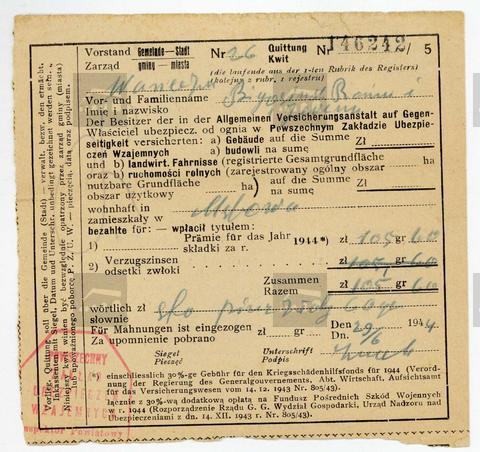 Vorstand Gemeinde—Stadt Nr 26 Quittung Nr 146242/ 5
Zarząd gminy — miasta Kwit
(die laufende aus der 1-ten Rubrik des Registers)
(kolejny z rubr. 1 rejestru)
Vor- und Familienname
Imię i nazwisko
Der Besitzer der in der Allgemeinen Versicherungsanstalt auf Gegen-
Właściciel ubezpiecz. od ognia w Powszechnym Zakładzie Ubezpie-
seitigkeit versicherten: a) Gebäude auf die Summe Zł
czeń Wzajemnych a) budowli na sumę
und b) landwirt. Fahrnisse (registrierte Gesamtgrundfläche ha
oraz b) ruchomości rolnych (zarejestrowany ogólny obszar
nutzbare Grundfläche ha) auf die Summe Zł
obszar użytkowy na sumę
wohnhaft in
zamieszkały w
bezahlte für: — wpłacił tytułem:
1) Prämie für das Jahr 1944*) zł 105 gr 60
składki za r.
2) Verzugszinsen zł 105 gr 60
odsetki zwłoki
Zusammen zł 105 gr 60
Razem
wörtlich zł sto
słownie
Für Mahnungen ist eingezogen zł gr Den 29/6 1944.
Za upomnienie pobrano Dn.
Siegel Unterschrift
Pieczęć Podpis
*) einschliesslich 30%-ige Gebühr für den Kriegsschädenhilfsfonds für 1944 (Verord-
nung der Regierung des Generalgouvernements, Abt. Wirtschaft, Aufsichtsamt
für das Versicherungswesen vom 14. 12. 1943 Nr. 805/43).
łącznie z 30%-wą dodatkową opłatą na Fundusz Pośrednich Szkód Wojennych
w r. 1944 (Rozporządzenie Rządu G. G. Wydział Gospodarki, Urząd Nadzoru nad
Ubezpieczeniami z dn. 14. XII. 1943 r. Nr. 805/43).
Vorlieg. Quittung soll über die Gemeinde (Stadt) — verwalt. bezw. den ermächt.
Inkassenten mit Siegel, Datum und Unterschr. unbedingt gezeichnet werden sein.
Niniejszy kwit winien być bezwzględnie opatrzony przez zarząd gminy (miasta)
lub upoważnionego poborcę P. Z. U. W. — pieczęcią, datą oraz podpisem.
POWSZECHNY
ZAKŁAD
UBEZPIECZEŃ
WZAJEMNYCH
Inspektor Powiatowy